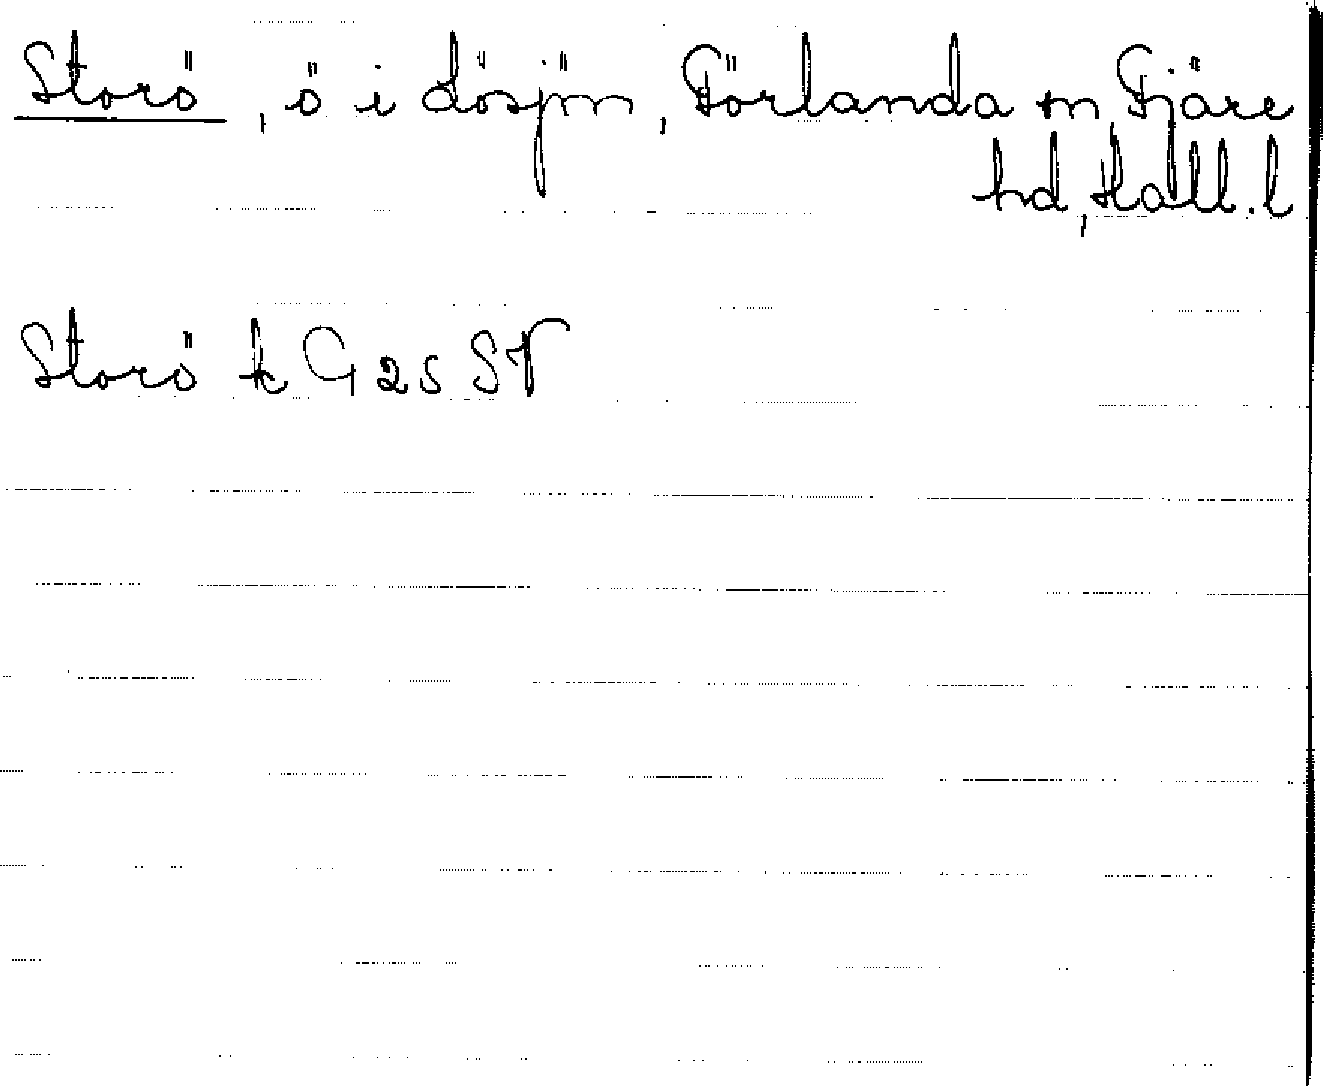 Storö, ö i Lösjön, Förlanda sn, Fjäre
hd, Hall. l
Storö k G 25 SV